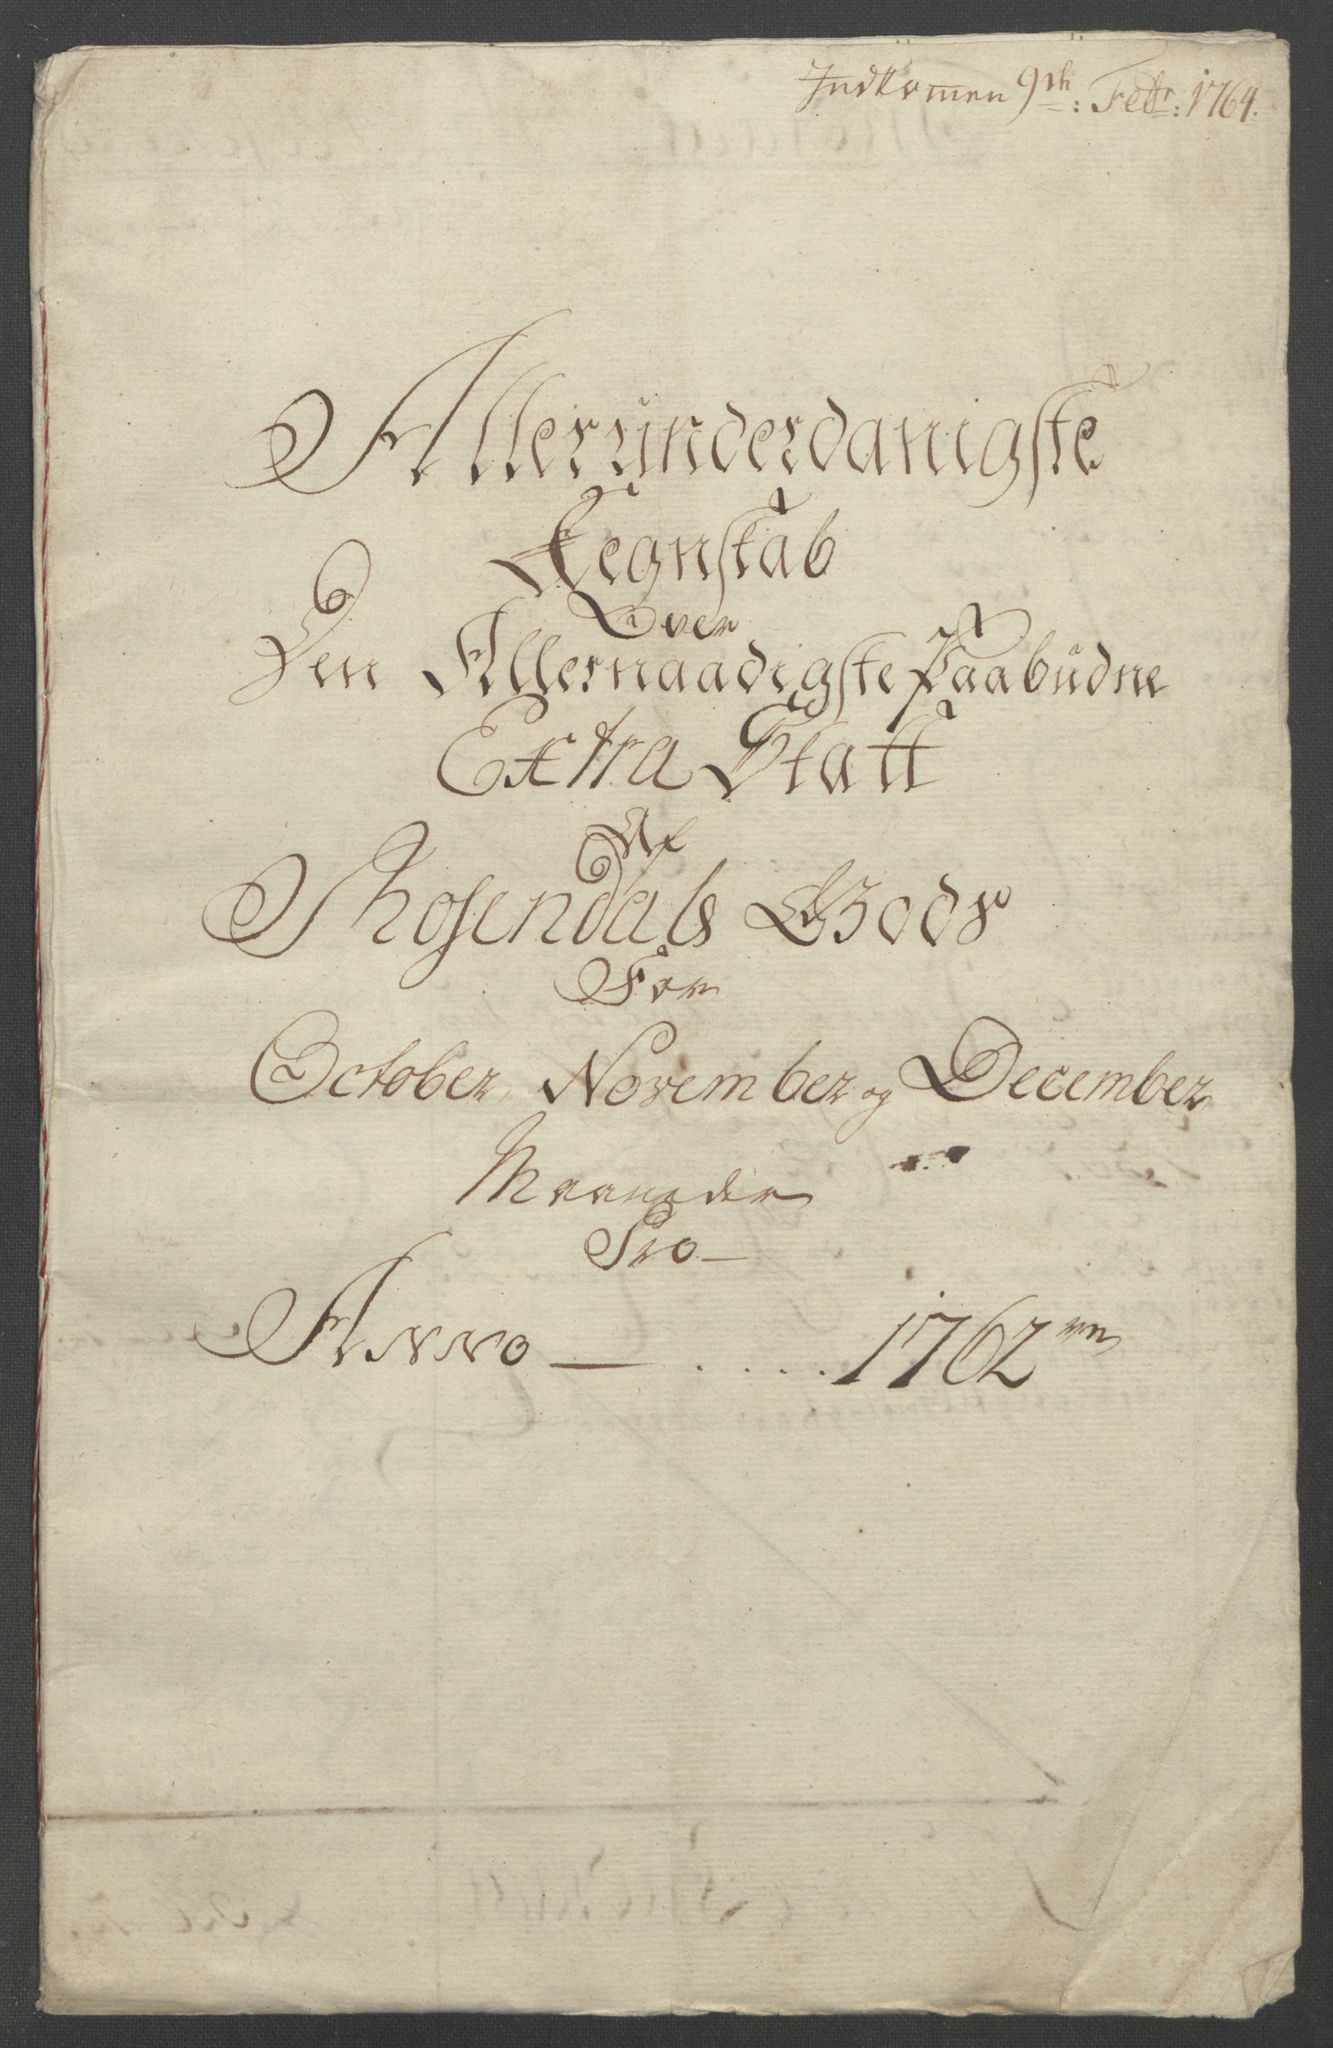 Indkomen 9de: Febr: 1764.
Alleründerdanigste
Regnskab
Over
Den Allernaadigste Paabüdne
Extra Skatt
Af
Rosendals Gods
For
October, November og December
Maaneder
Pro
Anno — . . . . . 1762